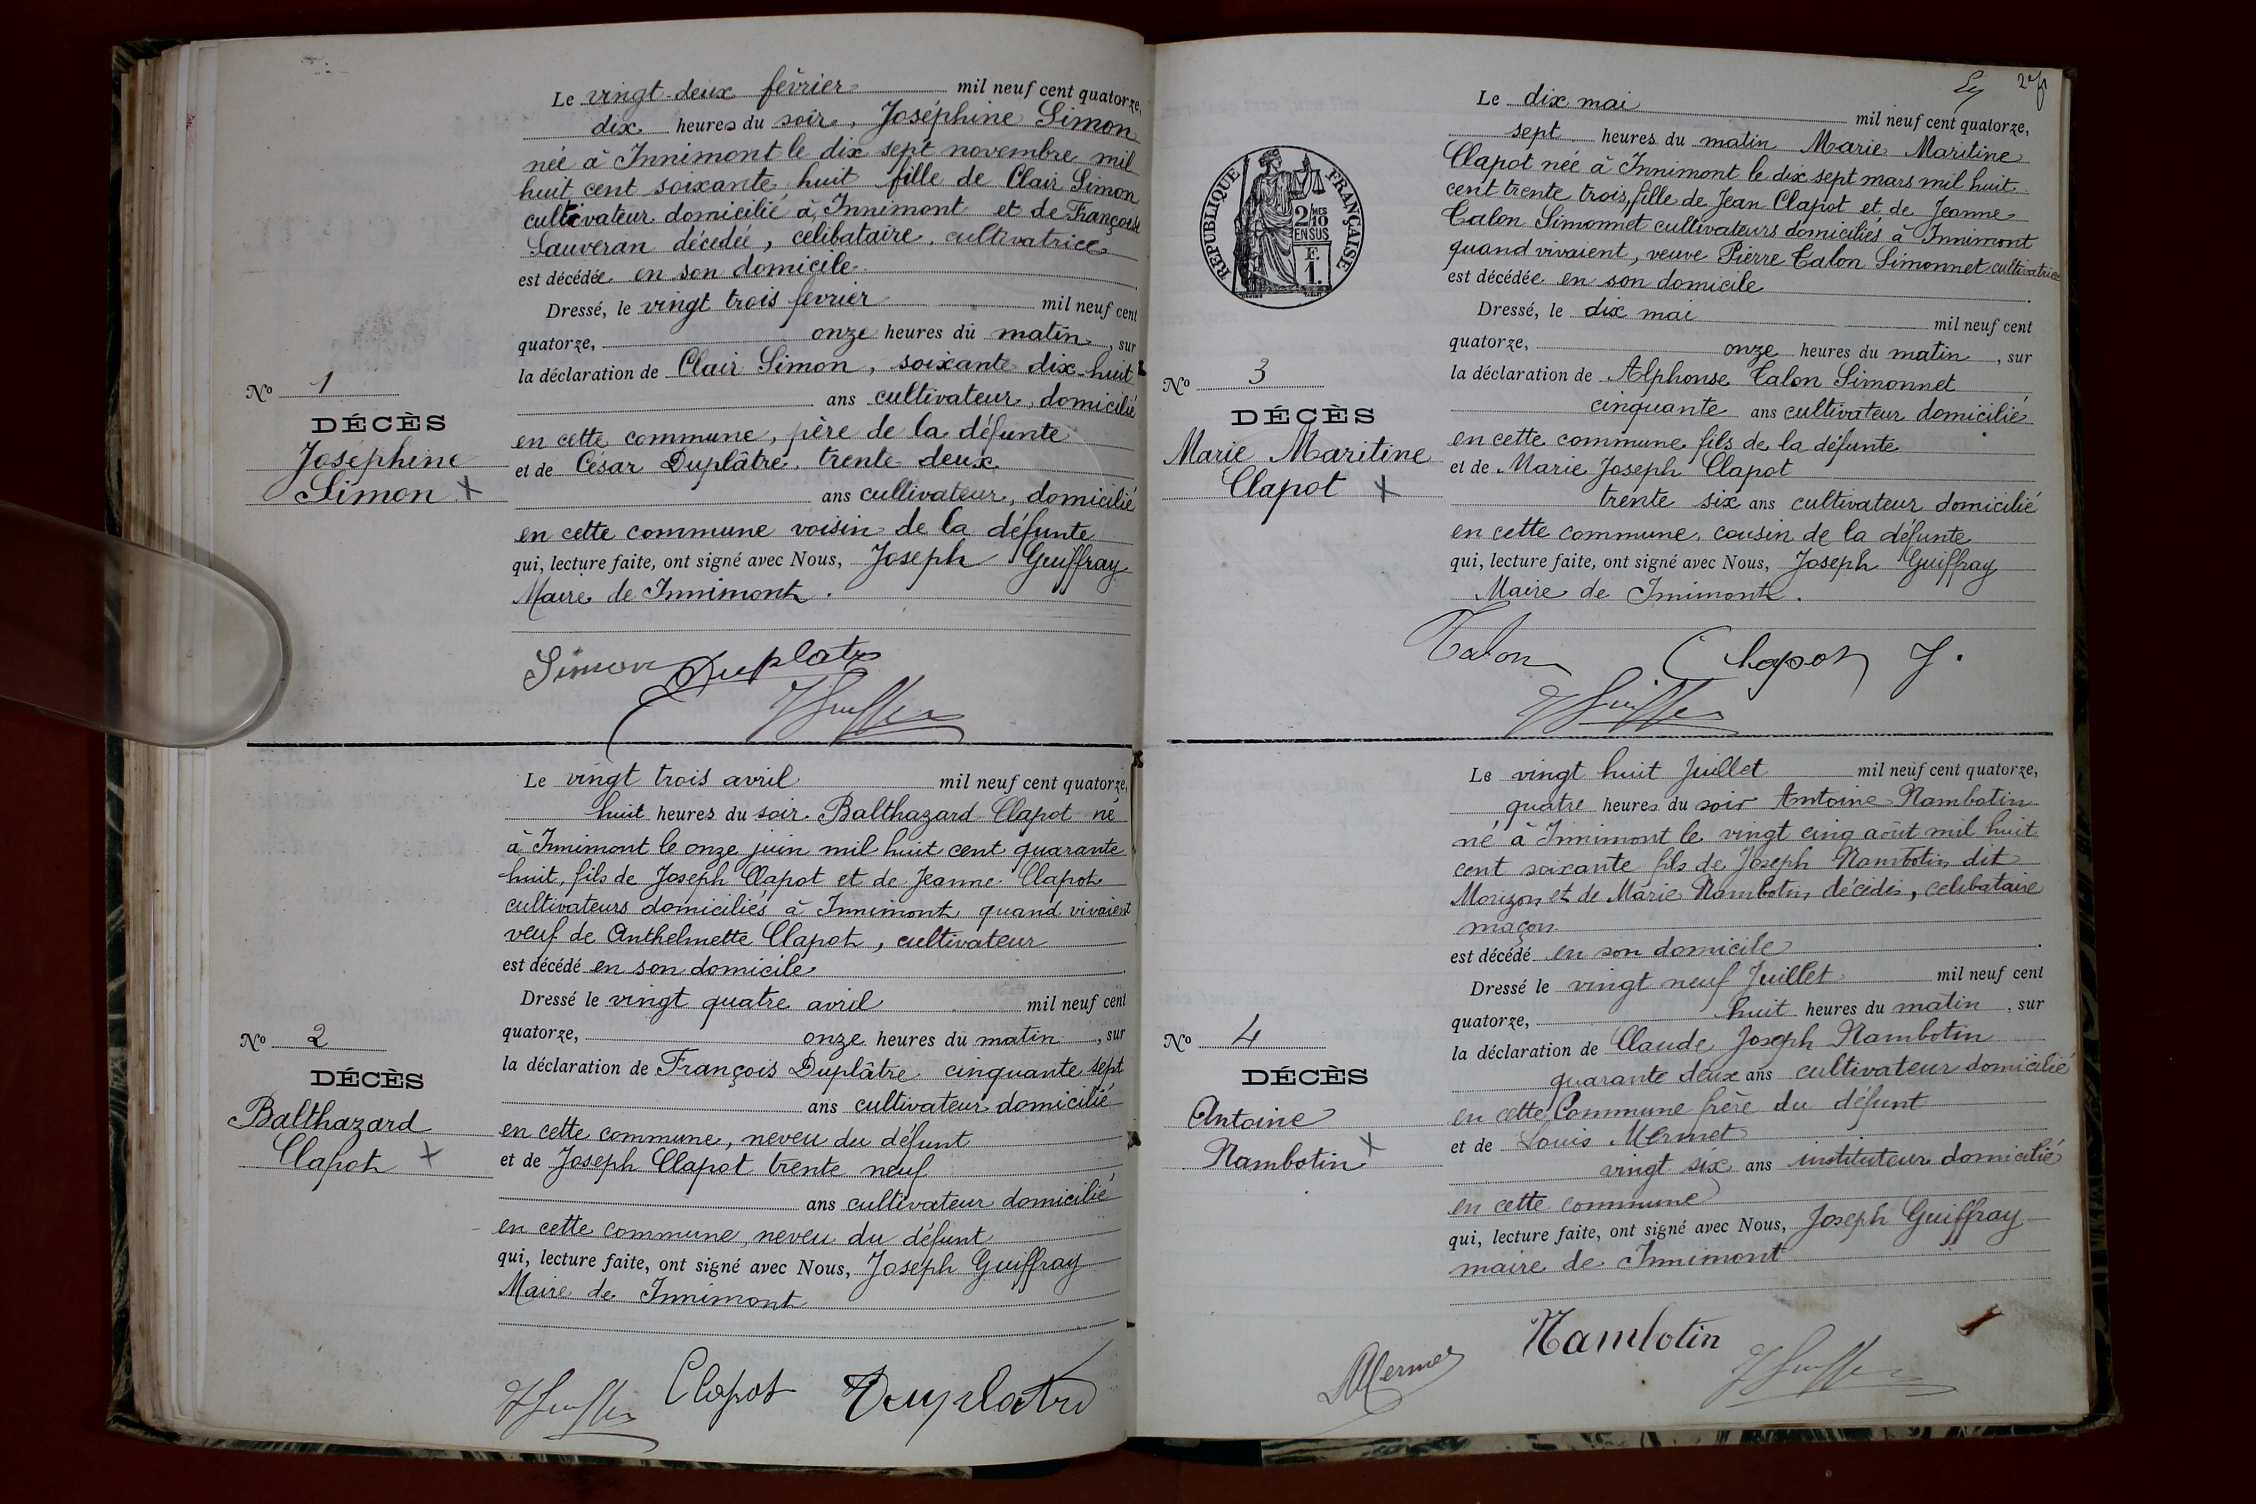 Le vingt-deux février mil neuf cent quatorze,
dix heures du soir, Joséphine Simon
née à Innimont le dix sept novembre mil
huit cent soixante huit fille de Clair Simon
cultivateur domicilié à Innimont et de Françoise
Sauveran décédée, celibataire, cultivatrice
est décédée en son domicile
Dressé, le vingt trois fevrier mil neuf cent
quatorze, onze heures du matin, sur
la déclaration de Clair Simon, soixante dix-huit
ans cultivateur, domicilié
en cette commune, père de la défunte
et de César Duplâtre, trente-deux
ans cultivateur, domicilié
en cette commune voisin de la défunte
qui, lecture faite, ont signé avec Nous, Joseph Guiffray
Maire de Innimont.
Simon Duplatre
No 1
DÉCÈS
Joséphine
Simon
Le vingt trois avril mil neuf cent quatorze,
huit heures du soir. Balthazard Clapot né
à Innimont le onze juin mil huit cent quarante
huit, fils de Joseph Clapot et de Jeanne Clapot
cultivateurs domiciliés à Innimont quand vivaient
veuf de Anthelmette Clapot, cultivateur
est décédé en son domicile
Dressé le vingt quatre avril mil neuf cent
quatorze, onze heures du matin, sur
la déclaration de François Duplâtre cinquante sept
ans cultivateur domicilié
en cette commune, neveu du défunt
et de Joseph Clapot trente neuf
ans cultivateur domicilié
en cette commune, neveu du défunt
qui, lecture faite, ont signé avec Nous, Joseph Guiffray
Maire de Innimont
Clapot Duplatre
No 2
DÉCÈS
Balthazard
Clapot
RÉPUBLIQUE FRANÇAISE
2/10 MES
EN SUS
F.
1.
Le dix mai mil neuf cent quatorze,
sept heures du matin Marie Maritine
Clapot née à Innimont le dix sept mars mil huit
cent trente trois, fille de Jean Clapot et de Jeanne
Calon Simonnet cultivateurs domiciliés à Innimont
quand vivaient, veuve Pierre Calon Simonnet cultivatrice
est décédée en son domicile
Dressé, le dix mai mil neuf cent
quatorze, onze heures du matin, sur
la déclaration de Alphonse Calon Simonnet
cinquante ans cultivateur domicilié
en cette commune fils de la défunte
et de Marie Joseph Clapot
trente six ans cultivateur domicilié
en cette commune, cousin de la défunte
qui, lecture faite, ont signé avec Nous, Joseph Guiffray
Maire de Innimont.
Calon Clapot J.
No 3
DÉCÈS
Marie Maritine
Clapot
Le vingt huit Juillet mil neuf cent quatorze,
quatre heures du soir Antoine Nambotin
né à Innimont le vingt cinq août mil huit
cent soixante fils de Joseph Nambotin dit
Morizon et de Marie Nambotin décédés, celibataire
maçon
est décédé en son domicile
Dressé le vingt neuf Juillet mil neuf cent
quatorze, huit heures du matin, sur
la déclaration de Claude Joseph Nambotin
quarante deux ans cultivateur domicilié
en cette Commune frère du défunt
et de Louis Mermet
vingt six ans instituteur domicilié
en cette commune
qui, lecture faite, ont signé avec Nous, Joseph Guiffray
maire de Innimont
LMermet Nambotin
No 4
DÉCÈS
Antoine
Nambotin